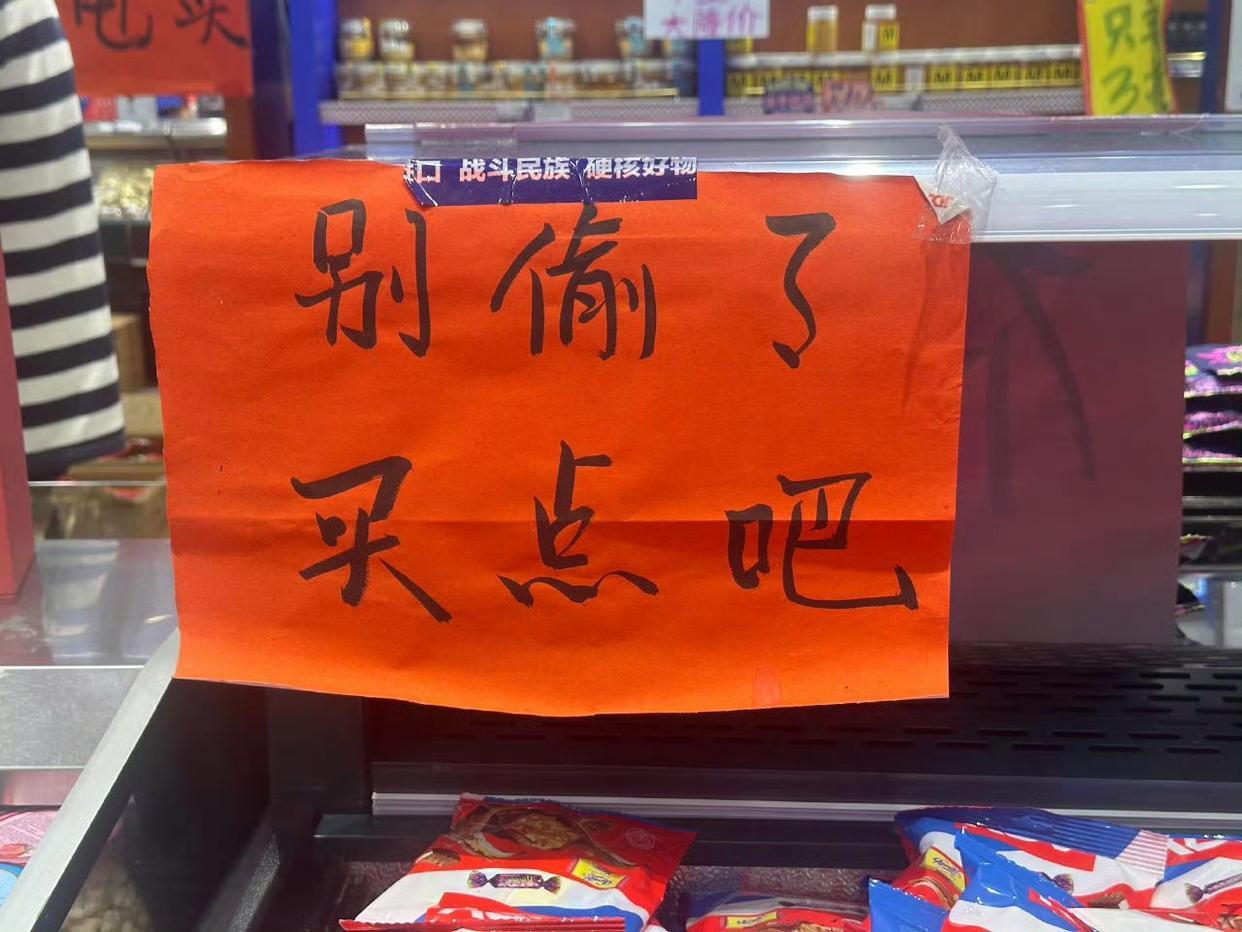 大降价
只
3
战斗民族 硬核好物
别偷了
买点吧